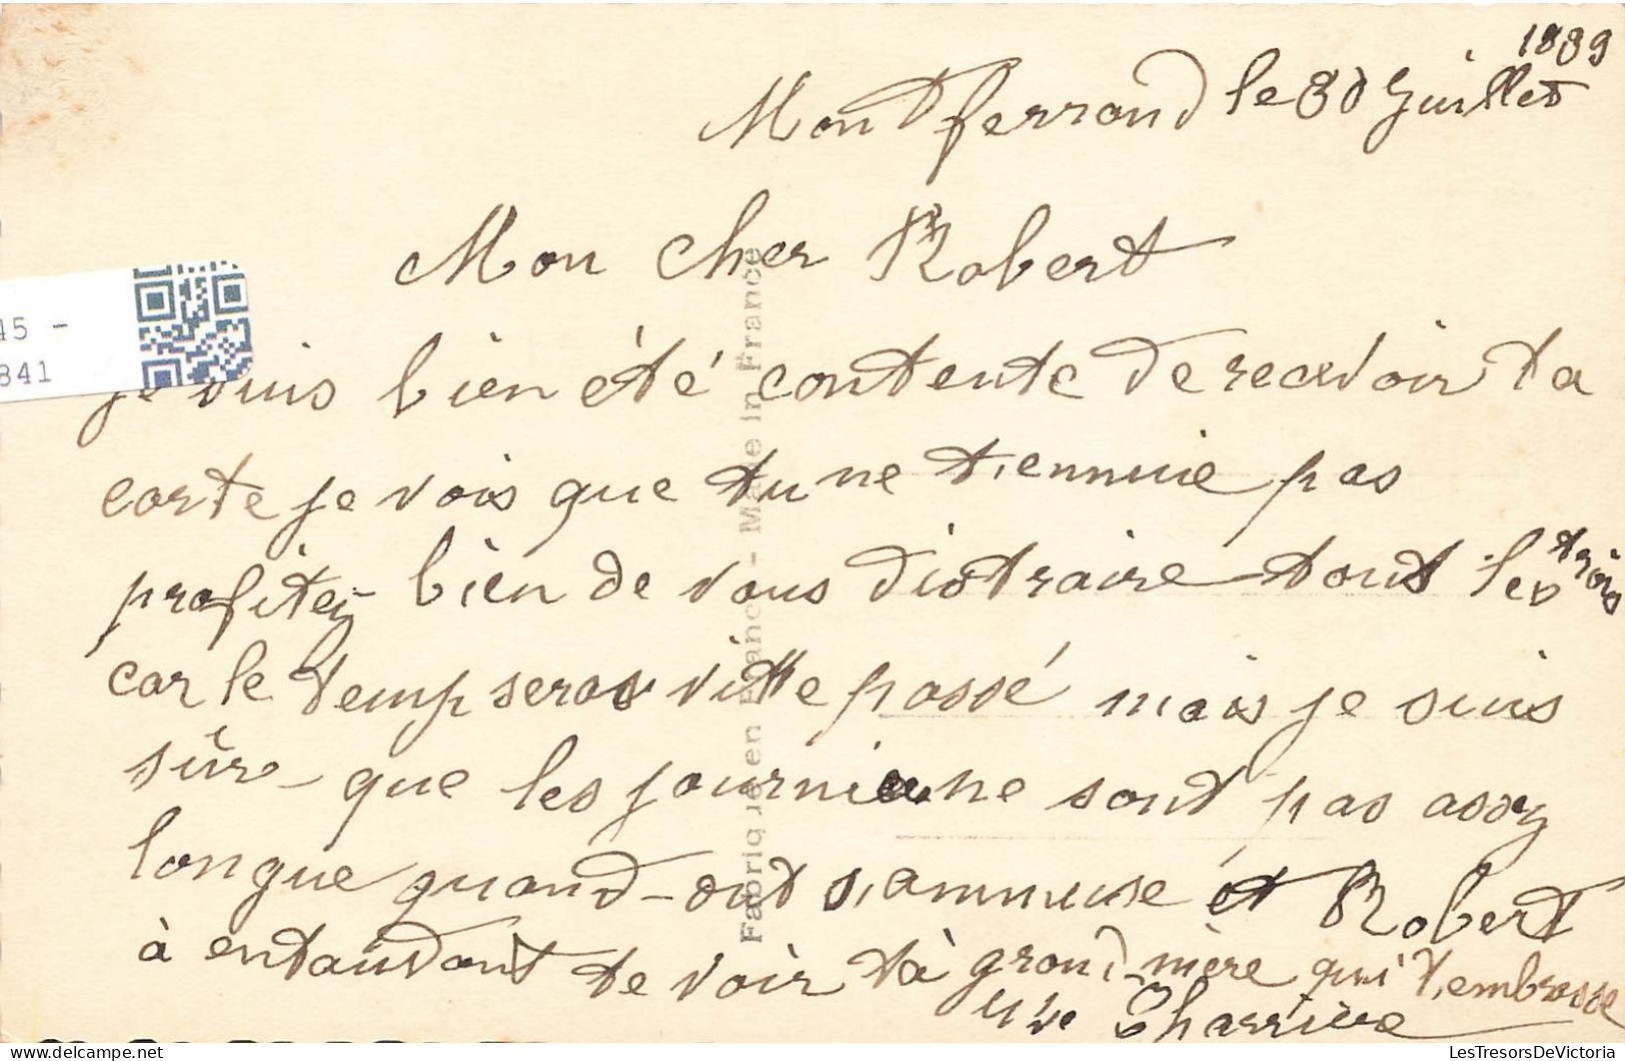 1939
Montferrand le 30 Juillet
Mon cher Robert
je suis bien été contente de recevoir ta
carte je vois que tu ne t'ennuie pas
profitez bien de vous distraire tout les trois
car le temp seras vitte passé mais je suis
sûr que les journie ne sont pas assez
longue quand ont s'ammuse et Robert
à entandant de voir tà grand-mère qui t'embrasse
Vve Charrière
45 -
841
Fabriqué en France - Made in France
LesTresorsDeVictoria